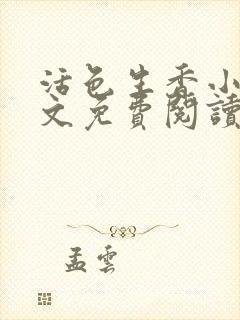 活色生香小
文免費閱讀
孟雲